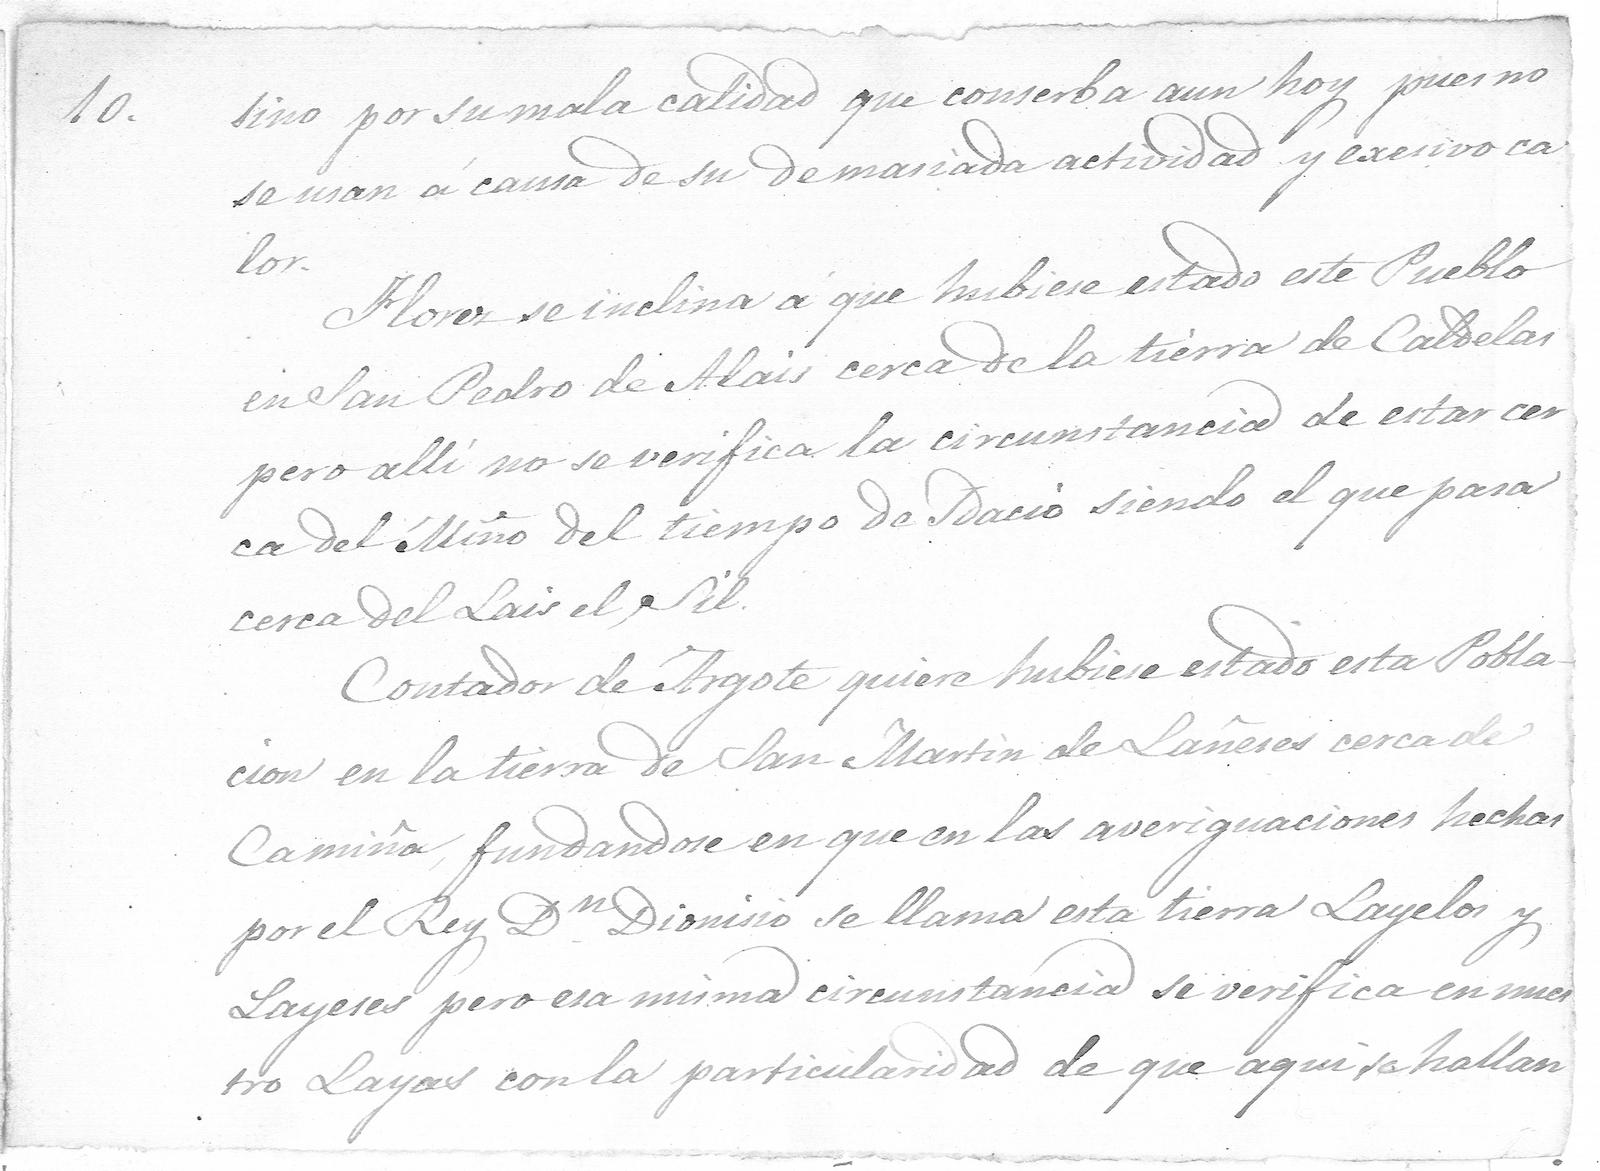 10. sino por su mala calidad que conserba aun hoy pues no
se usan á causa de su demasiada actividad y exesivo ca
lor.
Florez se inclina á que hubiese estado este Pueblo
en San Pedro de Alais cerca de la tierra de Caldelas
pero allí no se verifica la circunstancia de estar cer
ca del Miño del tiempo de Idacio siendo el que pasa
cerca del Lais el Sil.
Contador de Argote quiere hubiese estado esta Pobla-
cion en la tierra de San Martin de Lañeses cerca de
Camiña, fundandose en que en las averiguaciones hechas
por el Rey Dn Dionisio se llama esta tierra Layelos y
Layeses pero esa misma circunstancia se verifica en nues
tro Layas con la particularidad de que aqui se hallan